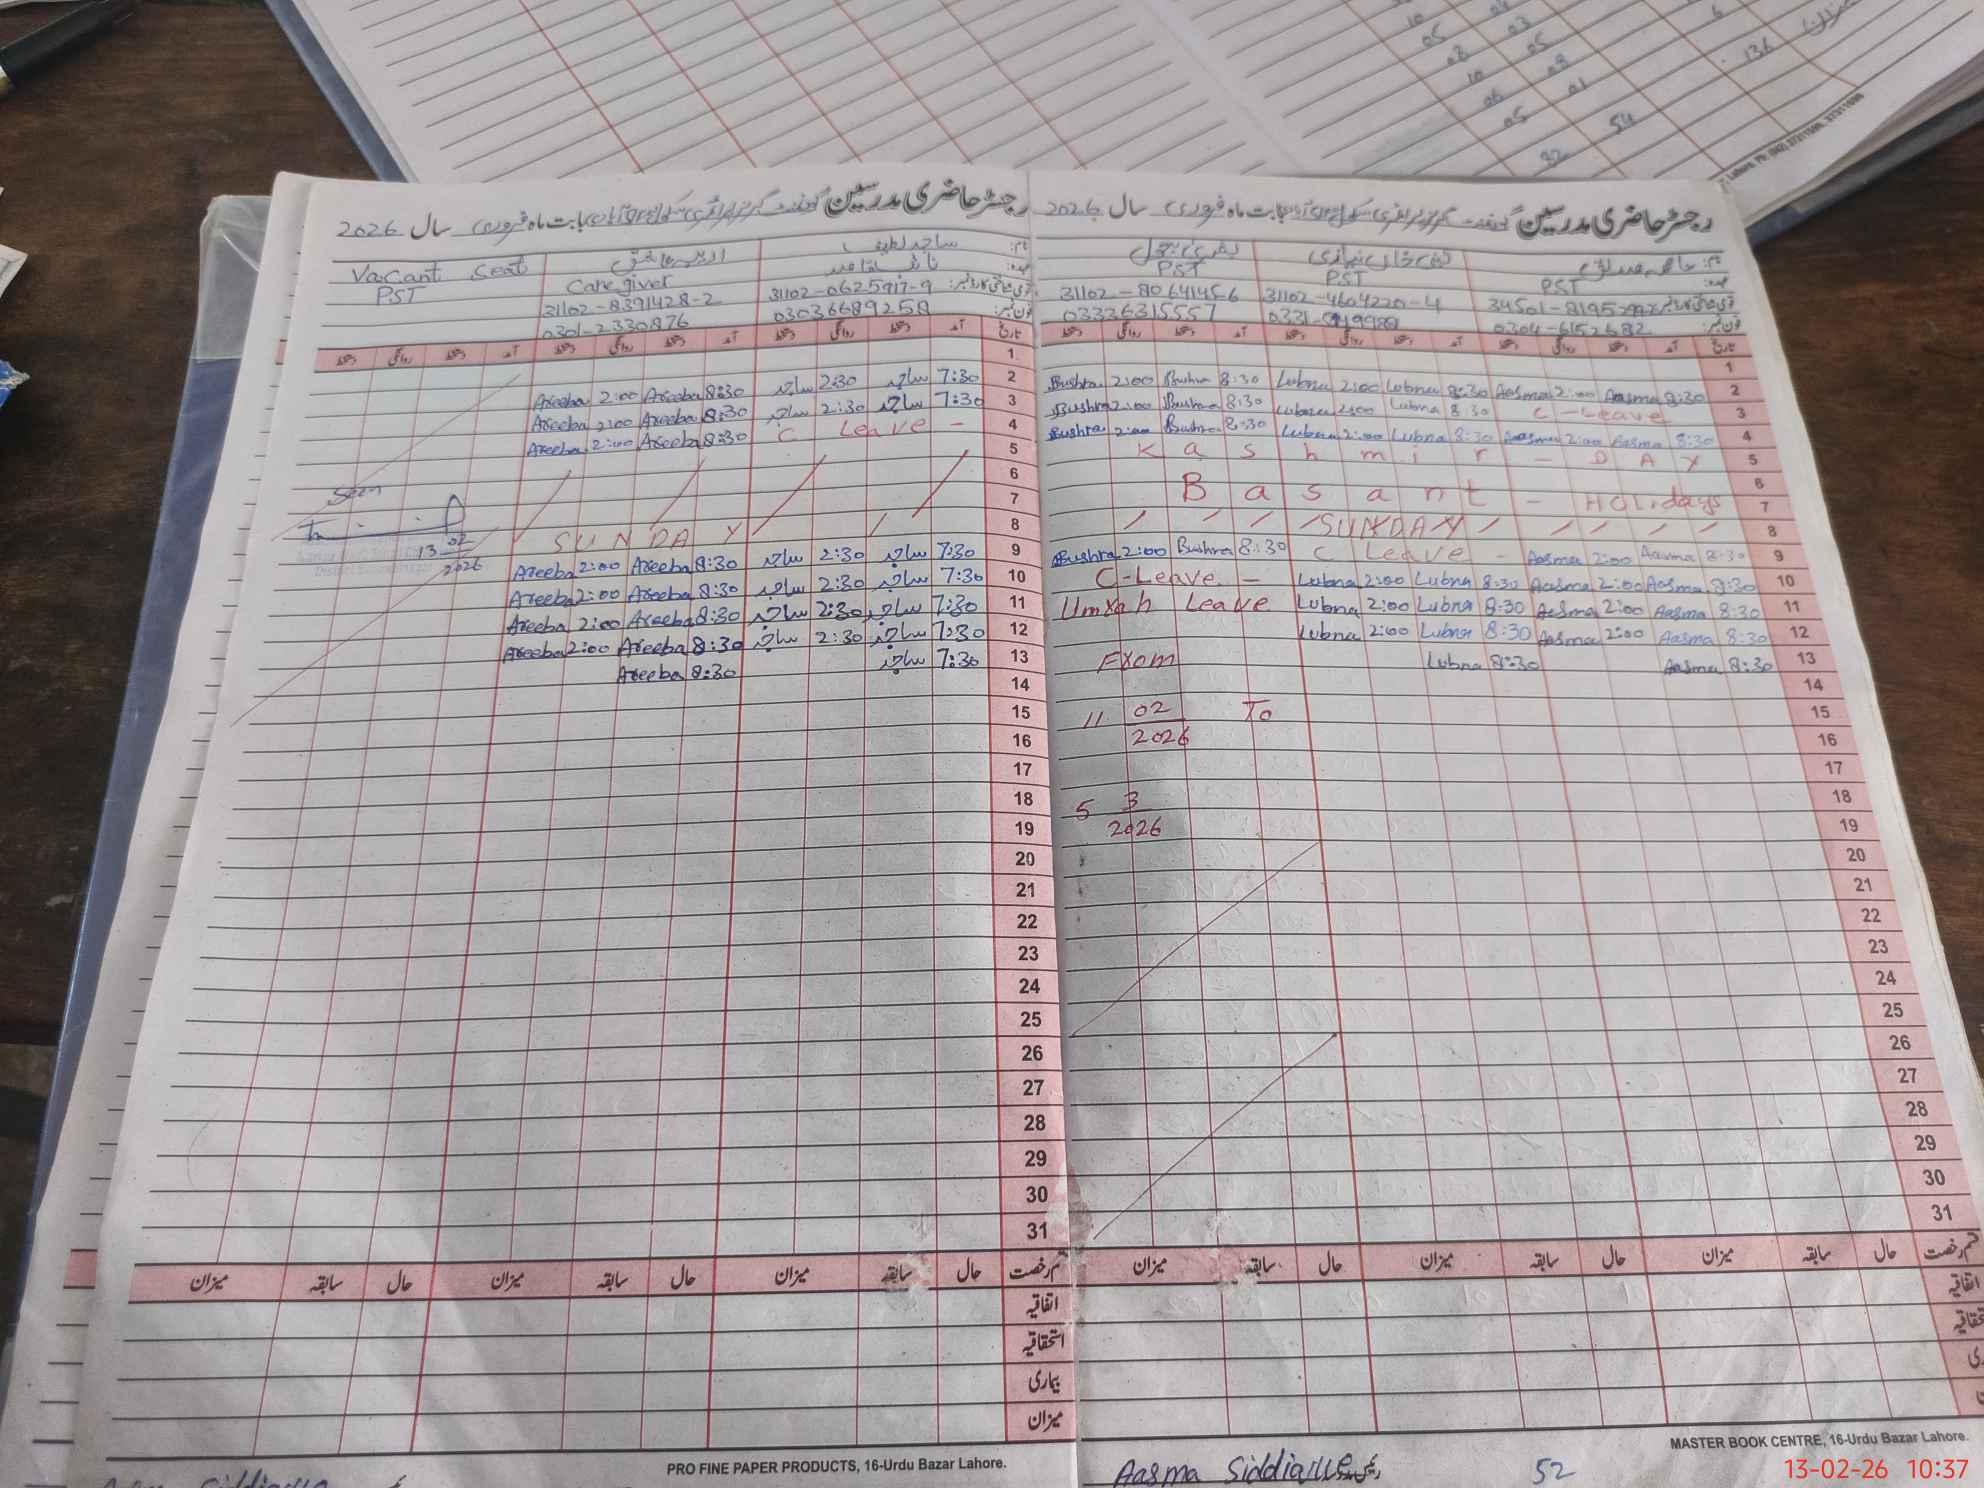 رجسٹر حاضری مدرسین گورنمنٹ گرلز پرائمری سکول بابت ماہ فروری سال 2026
نام: عاصمہ صدیق
لبنیٰ خان نیازی
بشریٰ بتول
عہدہ: PST
PST
PST
قومی شناختی کارڈ نمبر:
31102-4604220-4
31102-8064145-6
فون نمبر: 0304-6152682
03336315557
تاریخ آمد دستخط روانگی دستخط آمد دستخط روانگی دستخط آمد دستخط روانگی دستخط
1
2 8:30 Aasma 2:00 Aasma 8:30 Lubna 2:00 Lubna 8:30 Bushra 2:00 Bushra
3 C-Leave 8:30 Lubna 2:00 Lubna 8:30 Bushra 2:00 Bushra
4 8:30 Aasma 2:00 Aasma 8:30 Lubna 2:00 Lubna 8:30 Bushra 2:00 Bushra
5 Kashmir - DAY
6
7 Basant - HOLidays
8 SUNDAY
9 8:30 Aasma 2:00 Aasma C Leave - 8:30 Bushra 2:00 Bushra
10 8:30 Aasma 2:00 Aasma 8:30 Lubna 2:00 Lubna C-Leave -
11 8:30 Aasma 2:00 Aasma 8:30 Lubna 2:00 Lubna Umrah Leave
12 8:30 Aasma 2:00 Aasma 8:30 Lubna 2:00 Lubna
13 8:30 Aasma 8:30 Lubna From
14
15 11 02 To
16 2026
17
18 5 3
19 2026
20
21
22
23
24
25
26
27
28
29
30
31
قسم رخصت حال سابقہ میزان حال سابقہ میزان حال سابقہ میزان
اتفاقیہ
MASTER BOOK CENTRE, 16-Urdu Bazar Lahore.
Aasma Siddique
52
رجسٹر حاضری مدرسین گورنمنٹ گرلز پرائمری سکول بابت ماہ فروری سال 2026
نام: ساجد لطیف
Vacant Seat
عہدہ:
Care giver
PST
قومی شناختی کارڈ نمبر: 31102-0625917-9
31102-8391428-2
فون نمبر: 03036689258
0301-2330876
تاریخ آمد دستخط روانگی دستخط آمد دستخط روانگی دستخط آمد دستخط روانگی دستخط
1
2 7:30 ساجد 2:30 ساجد 8:30 Areeba 2:00 Areeba
3 7:30 ساجد 2:30 ساجد 8:30 Areeba 2:00 Areeba
4 C Leave - 8:30 Areeba 2:00 Areeba
5
6
7
8 SUNDAY
9 7:30 ساجد 2:30 ساجد 8:30 Areeba 2:00 Areeba
10 7:30 ساجد 2:30 ساجد 8:30 Areeba 2:00 Areeba
11 7:30 ساجد 2:30 ساجد 8:30 Areeba 2:00 Areeba
12 7:30 ساجد 2:30 ساجد 8:30 Areeba 2:00 Areeba
13 7:30 ساجد 8:30 Areeba
14
15
16
17
18
19
20
21
22
23
24
25
26
27
28
29
30
31
Seen
13 02
2026
حال سابقہ میزان حال سابقہ میزان حال سابقہ میزان
اتفاقیہ
استحقاقیہ
بیماری
میزان
PRO FINE PAPER PRODUCTS, 16-Urdu Bazar Lahore.
136
54
13-02-26 10:37